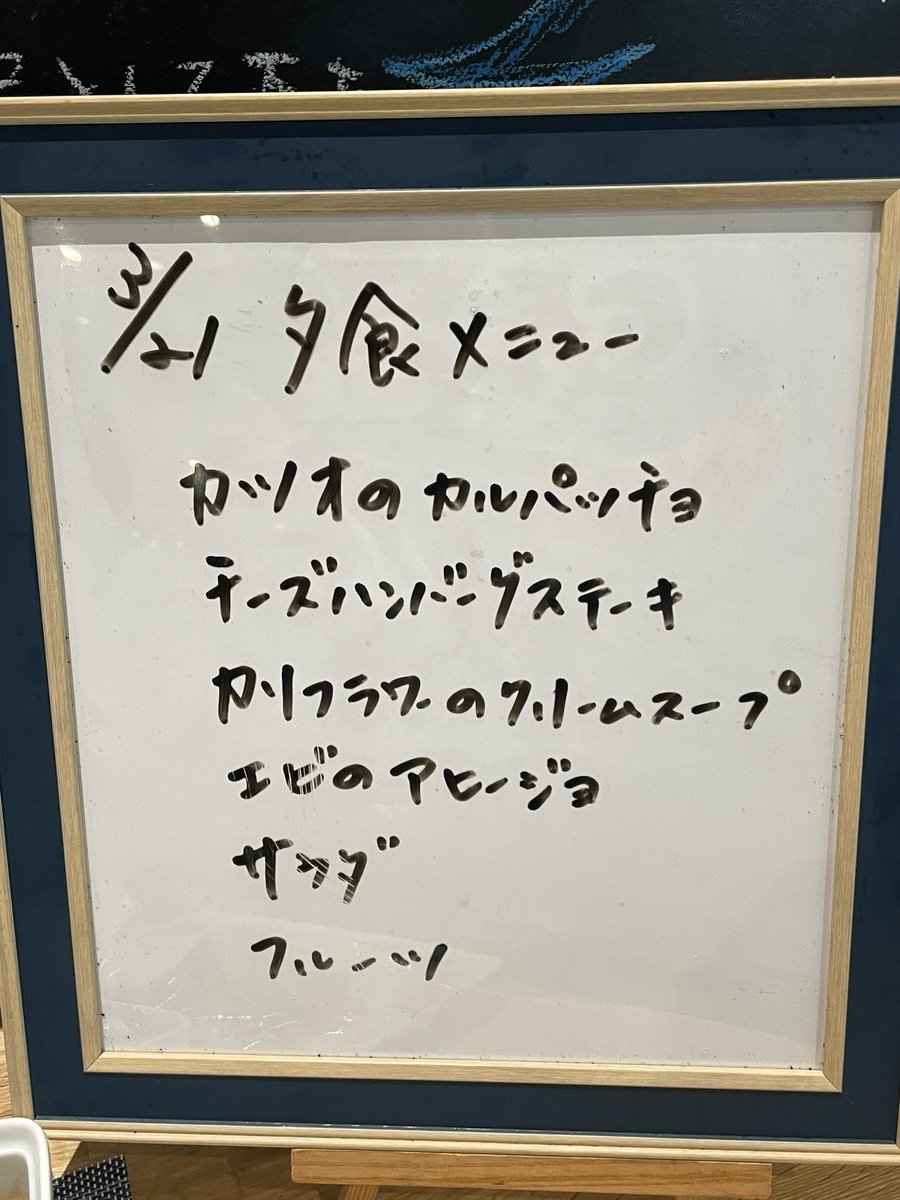 3/21 夕食メニュー
カツオのカルパッチョ
チーズハンバーグステーキ
カリフラワーのクリームスープ
エビのアヒージョ
サラダ
フルーツ